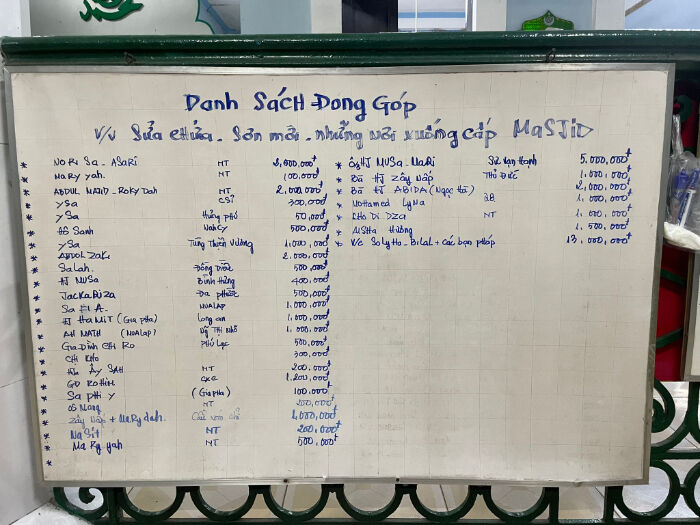 Danh Sách Đong Góp
V/v Sửa chửa - Sơn mới - những nơi xuống cấp MaSJiD
* NORI Sa - ASaRi NT 2,000.000đ
* MaRy yah. NT 100.000đ
* ABDUL MAJID - ROKy Dah NT 2.000.000đ
* ySa CSĨ 300,000đ
* ySa Hưng phú 50,000đ
* Sanh NaNcy 500,000đ
* ySa Tùng Thiện Vương 1,000.000đ
* ABDUL ZaKi 2.000.000đ
* SaLah. 500,000đ
* HJ MUSa Bình Hưng 400.000đ
* JacKaRiZa Đa phước 500,000đ
* Sa A. NUALAP 1.000.000đ
* HJ HaMiT (Gia pha) Long an 1.000.000đ
* AH MATH (NUaLap) Mỹ Thị Nhỏ 1.000.000đ
* Gia Đình CH RO Phú Lạc 500,000đ
* Chị KHO 300.000đ
* Ây SAH NT 200.000đ
* RoHiM CXC 1.200.000đ
* Sa phi y (Gia pha) 100.000đ
* Mong NT 200,000đ
* Zây Nấp + MaRy dah. 1,000,000đ
* Ma Sit NT 200.000đ
* Ma Ry yah NT 500,000đ
*
* Ông HJ MUSa - MaRi Sư Vạn Hạnh 5.000,000đ
* Bà HJ Zây Nấp THỦ ĐỨC 1.000,000đ
* Bà HJ AB DA (Ngọc Hà) 2,000.000đ
* Mohamed LyNa 28 1.000,000đ
* KHO Di Dza NT 1.000,000đ
* AiSHa Hường 1.500.000đ
* V/c SoLyHo - BiLaL + các bạn pháp 13.000,000đ